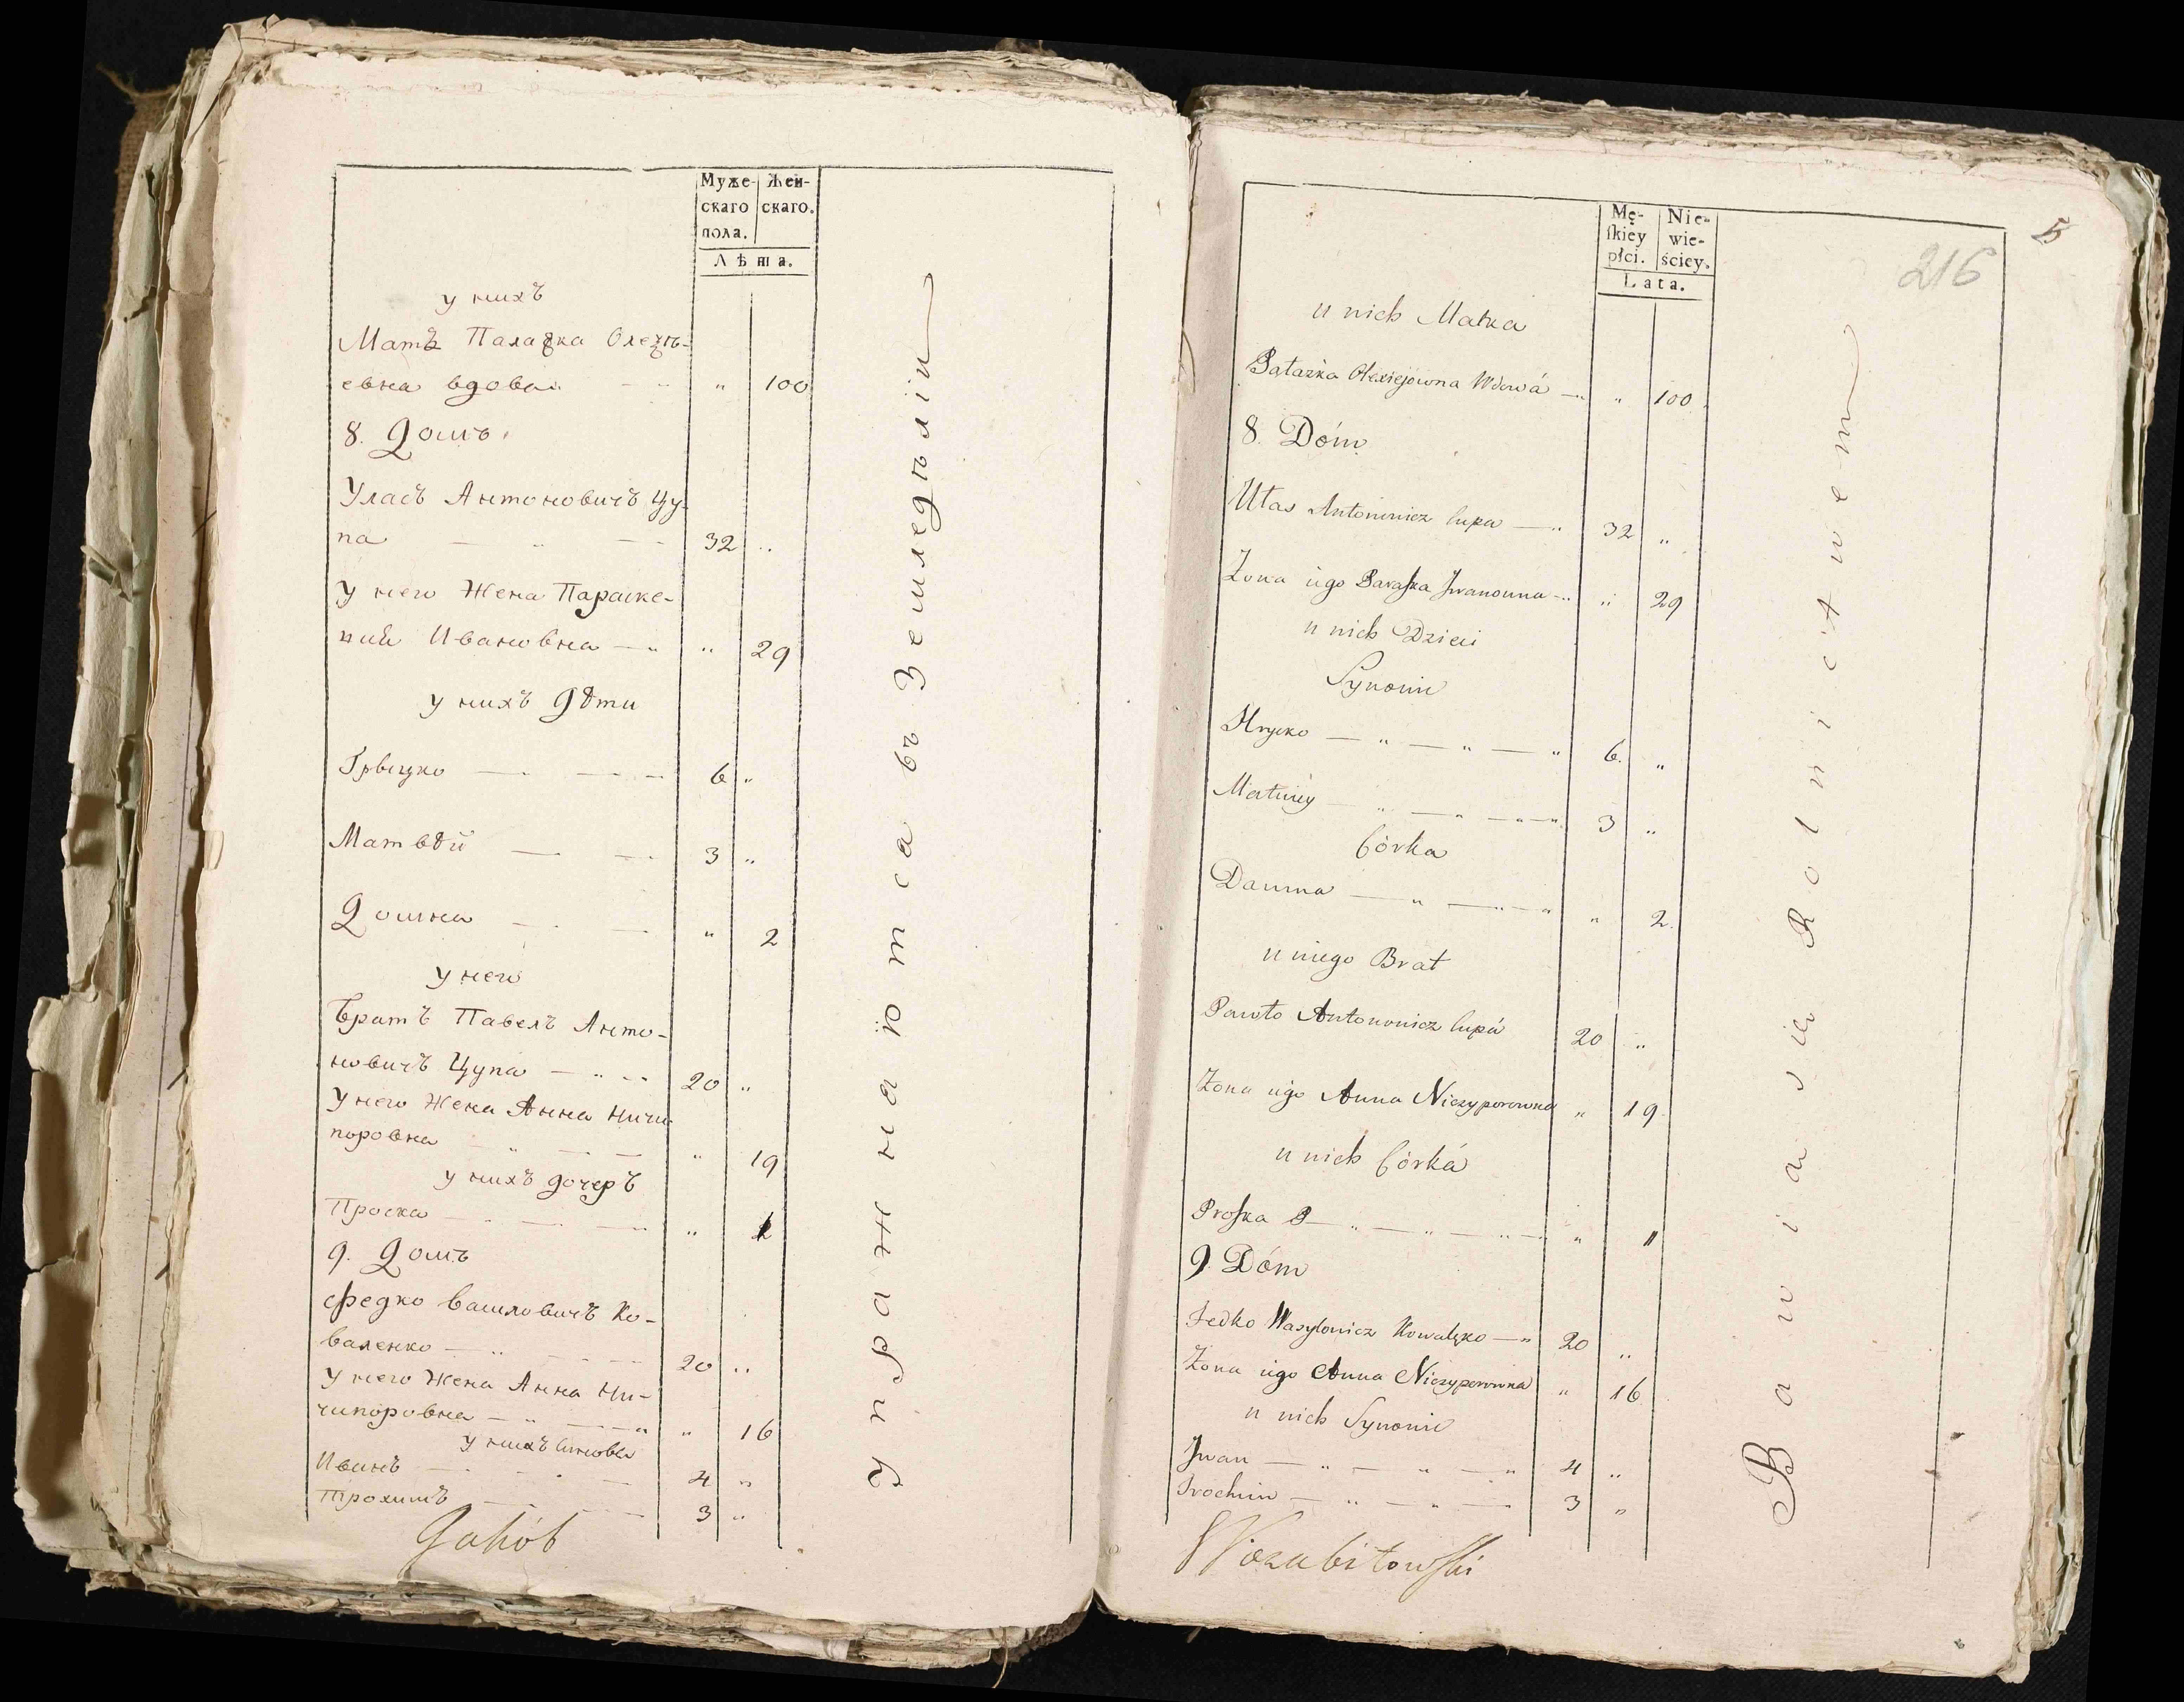 Муже-
скаго
пола.
Жен-
скаго.
Лѣта.
у нихъ
Матъ Палажка Олексѣ-
евна вдова " 100
8. Домъ
Уласъ Антоновичъ Цу-
па 32 "
У него Жена Параске-
вия Ивановна " 29
у нихъ Дѣти
Грыцко 6 "
Матвѣй 3 "
Домна " 2
У него
Братъ Павелъ Анто-
новичъ Цупа 20 "
У него Жена Анна Ничи-
поровна " 19
у нихъ дочеръ
Проска " 1
9. Домъ
Федко Василовичъ Ко-
валенко 20 "
У него Жена Анна Ни-
чипоровна " 16
у нихъ Синовья
Иванъ 4 "
Трохимъ 3 "
Упражнаютса въ Земледѣліи
Jakób
5
216
Mę-
ſkiey
płci.
Nie-
wie-
ściey.
Lata.
u nich Matka
Pałażka Olexiejowna Wdowá " 100
8. Dóm
Ułas Antonowicz Cupa 32 "
Żona iego Paraſka Jwanowna " 29
u nich Dzieci
Synowie
Hryćko 6 "
Matwiey 3 "
Córka
Damna " 2
u niego Brat
Pawło Antonowicz Cupá 20 "
Żona iego Anna Niczyporowna " 19
u nich Córká
Proſka " 1
9 Dóm
Fedko Wasylowicz Kowalęko 20 "
Żona iego Anna Niczyporowna " 16
u nich Synowie
Jwan 4 "
Trochim 3 "
Bawią się Rolnictwem
Wozabitowſki